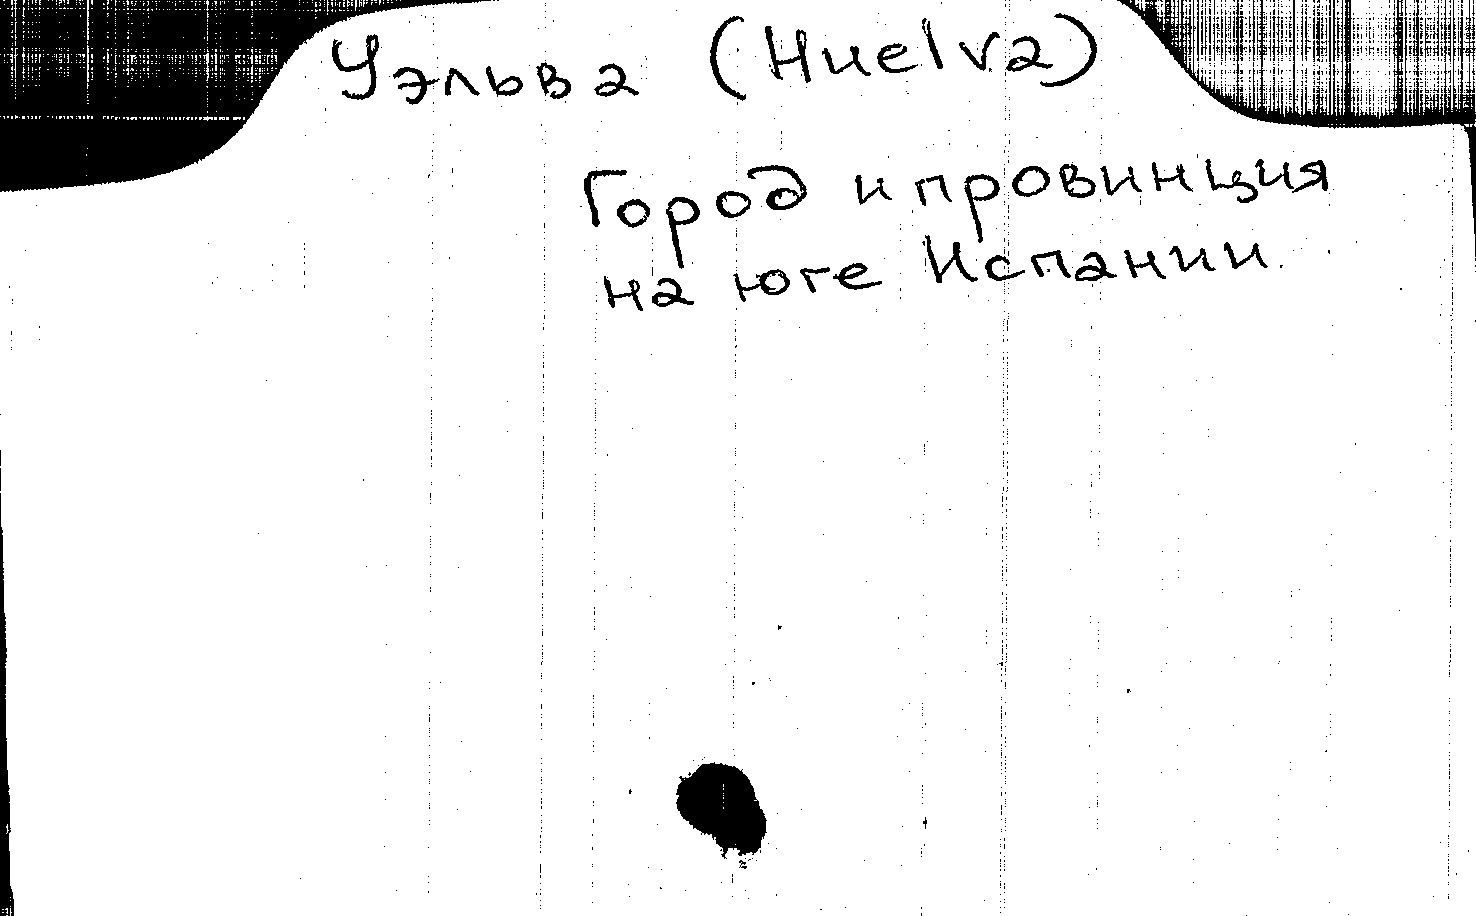 Уэльва (Huelva)
Город и провинция
на юге Испании